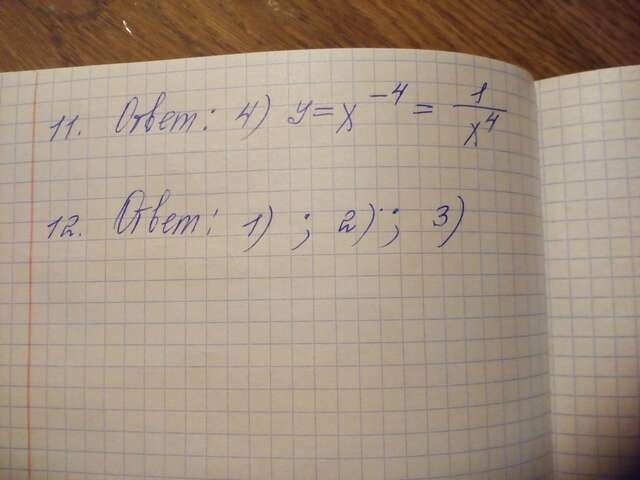 11. Ответ: 4) y=x⁻⁴ = 1/x⁴
12. Ответ: 1) ; 2) ; 3)